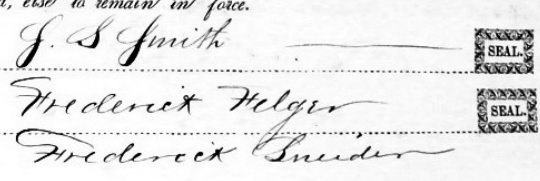 , else to remain in force.
J. S Smith SEAL.
Frederick Felger SEAL.
Frederick Sneider